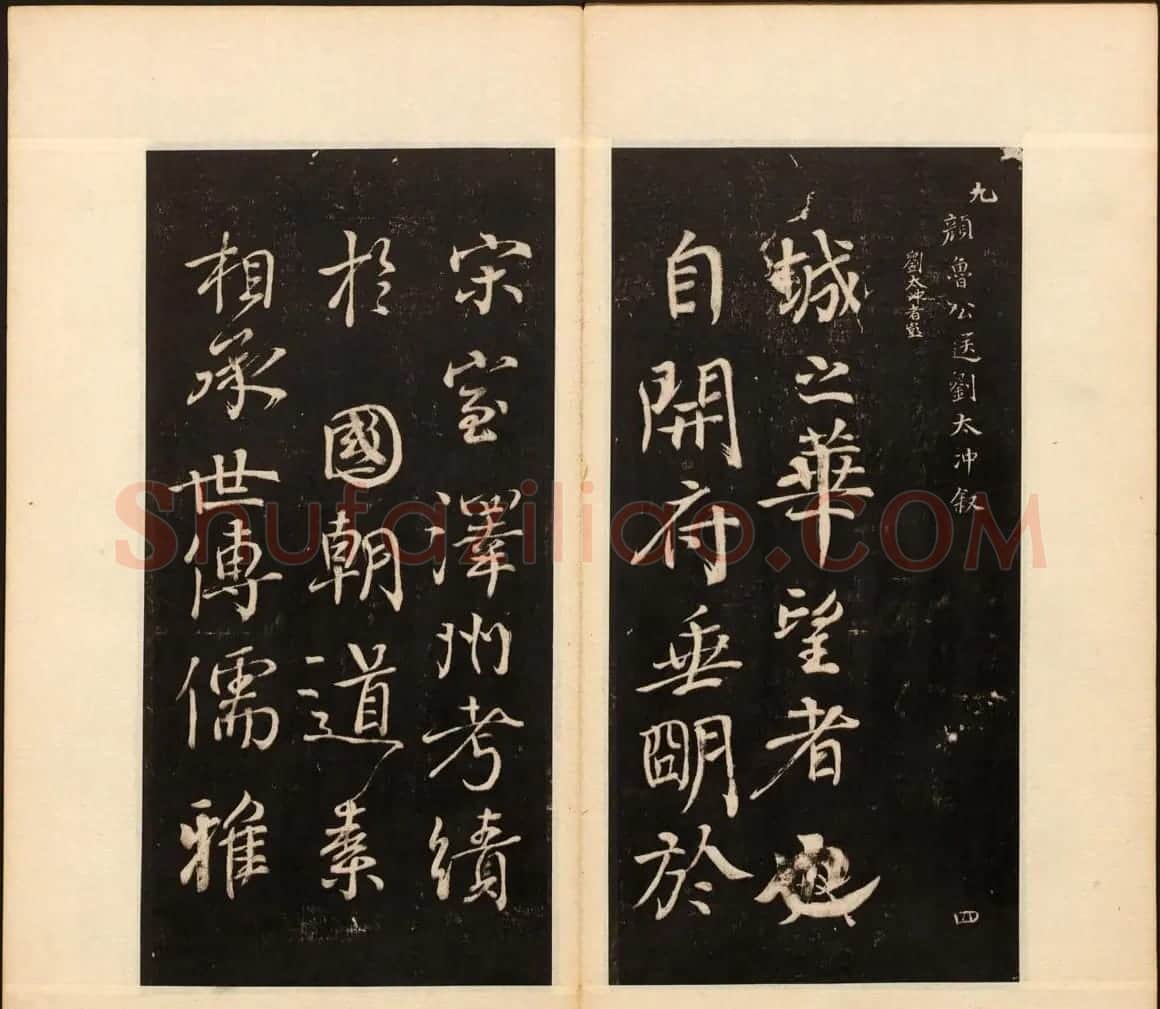 九
顏魯公送劉太冲叙
劉太冲者彭
城之華望者也
自開府垂明於
宋室澤州考績
於國朝道素
相承世傳儒雅
四
Shufaziliao.COM